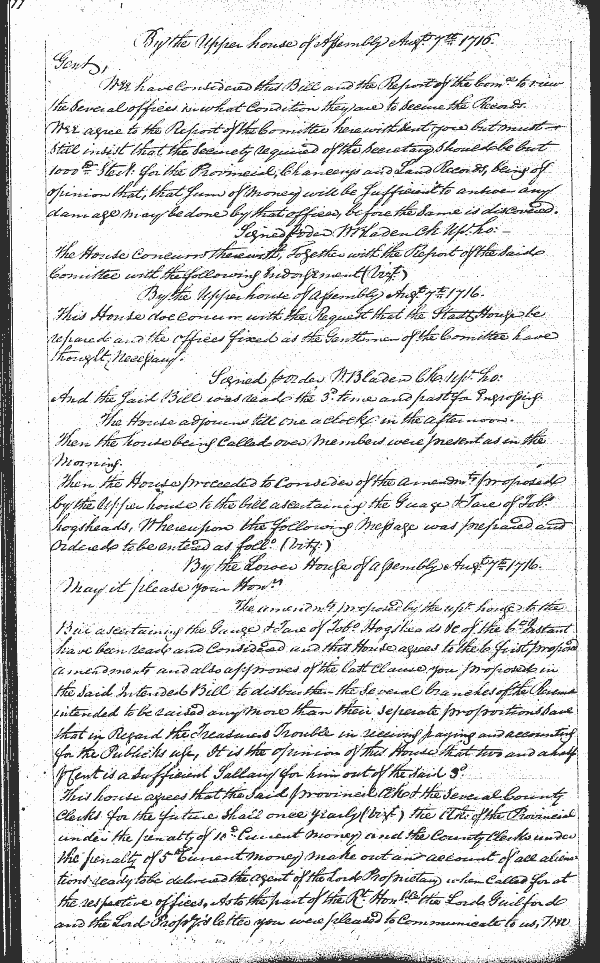 By the Upper house of Assembly Augt. 7th. 1716.
Gent,
Wee have Considered this Bill and the Report of the Comee. to view
the several offices in what Condition they are to secure the Records.
Wee agree to the Report of the Comittee herewith sent you but must
still insist that the security required of the Secretary should be but
1000 Sterl: for the Provincial, Chancerys and Land Records, being of
opinion that, that sum of money will be sufficient to answer any
damage may be done by that office, before the same is discovered.
Signed p order W Bladen Ck Up. ho:
The House Concurrs therewith, Together with the Report of the said
Comittee with the following Indorsement (vizt.)
By the Upper house of Assembly Augt. 7th. 1716.
This House doe Concurr with the Request that the Stadt House be
repaired and the offices fixed as the Gentlemen of the Comittee have
thought necessary.
Signed p order W Bladen Clk. Upr. ho:
And the said Bill was read the 3d. time and past for Engrossing.
The House adjourns till one a Clock in the afternoon.
Then the house being Called over members were present as in the
morning.
Then the House proceeded to Consider of the amendmts. proposed
by the Upper house to the bill ascertaining the Guage & Tare of Tobo.
hogsheads, Whereupon the following Message was prepared and
ordered to be entered as follo. (vizt.)
By the Lower House of assembly Augt. 7th. 1716.
May it please your Honrs.
The amendmts. proposed by the upr. house to the
Bill ascertaining the Gauge & Tare of Tobo. Hogsheads &c of the 6th. Instant
have been read and Considered and this House agrees to the 6 first proposed
amendments and also approves of the last Clause you proposed in
the said Intended Bill to disburthen the several branches of the Revenue
intended to be raised any more than their seperate proportions save
that in Regard the Treasurers Trouble in receiving paying and accounting
for the Publicks use, It is the opinion of this House that two and a half
p Cent is a sufficient Sallary for him out of the said 3d.
This house agrees that the said provincial Clk & the several County
Clerks for the future shall once yearly (vizt.) the Clk: of the Provincial
under the penalty of 10 Current money and the County Clerks under
the penalty of 5 Current money make out an account of all aliena-
tions ready to be delivered the agent of the Lord Proprietary when Called for at
the respective offices, As to the part of the Rt. Honble. the Lord Guilford
and the Lord Proprys. letter you were pleased to Communicate to us, Wee